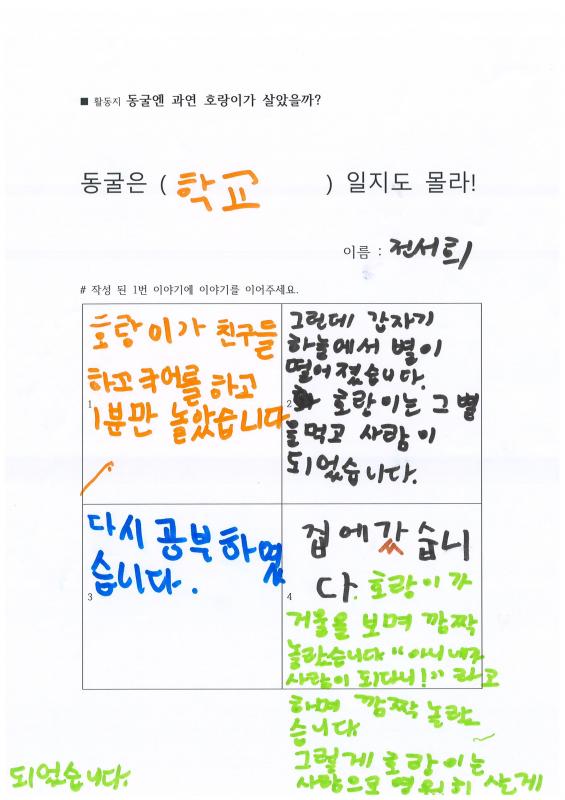 ■ 활동지 동굴엔 과연 호랑이가 살았을까?
동굴은 ( 학교 ) 일지도 몰라!
이름 : 전서희
# 작성 된 1번 이야기에 이야기를 이어주세요.
1
호랑이가 친구들
하고 키어를 하고
1분만 놀았습니다
2
그런데 갑자기
하늘에서 별이
떨어졌습니다.
호랑이는 그 별
을 먹고 사람이
되었습니다.
3
다시 공부하였
습니다.
4
집에 갔습니
다. 호랑이가
거울을 보며 깜짝
놀랐습니다 "아니 내가
사람이 되다니!" 라고
하며 깜짝 놀랐
습니다
그렇게 호랑이는
사람으로 영원히 사는게
되었습니다.